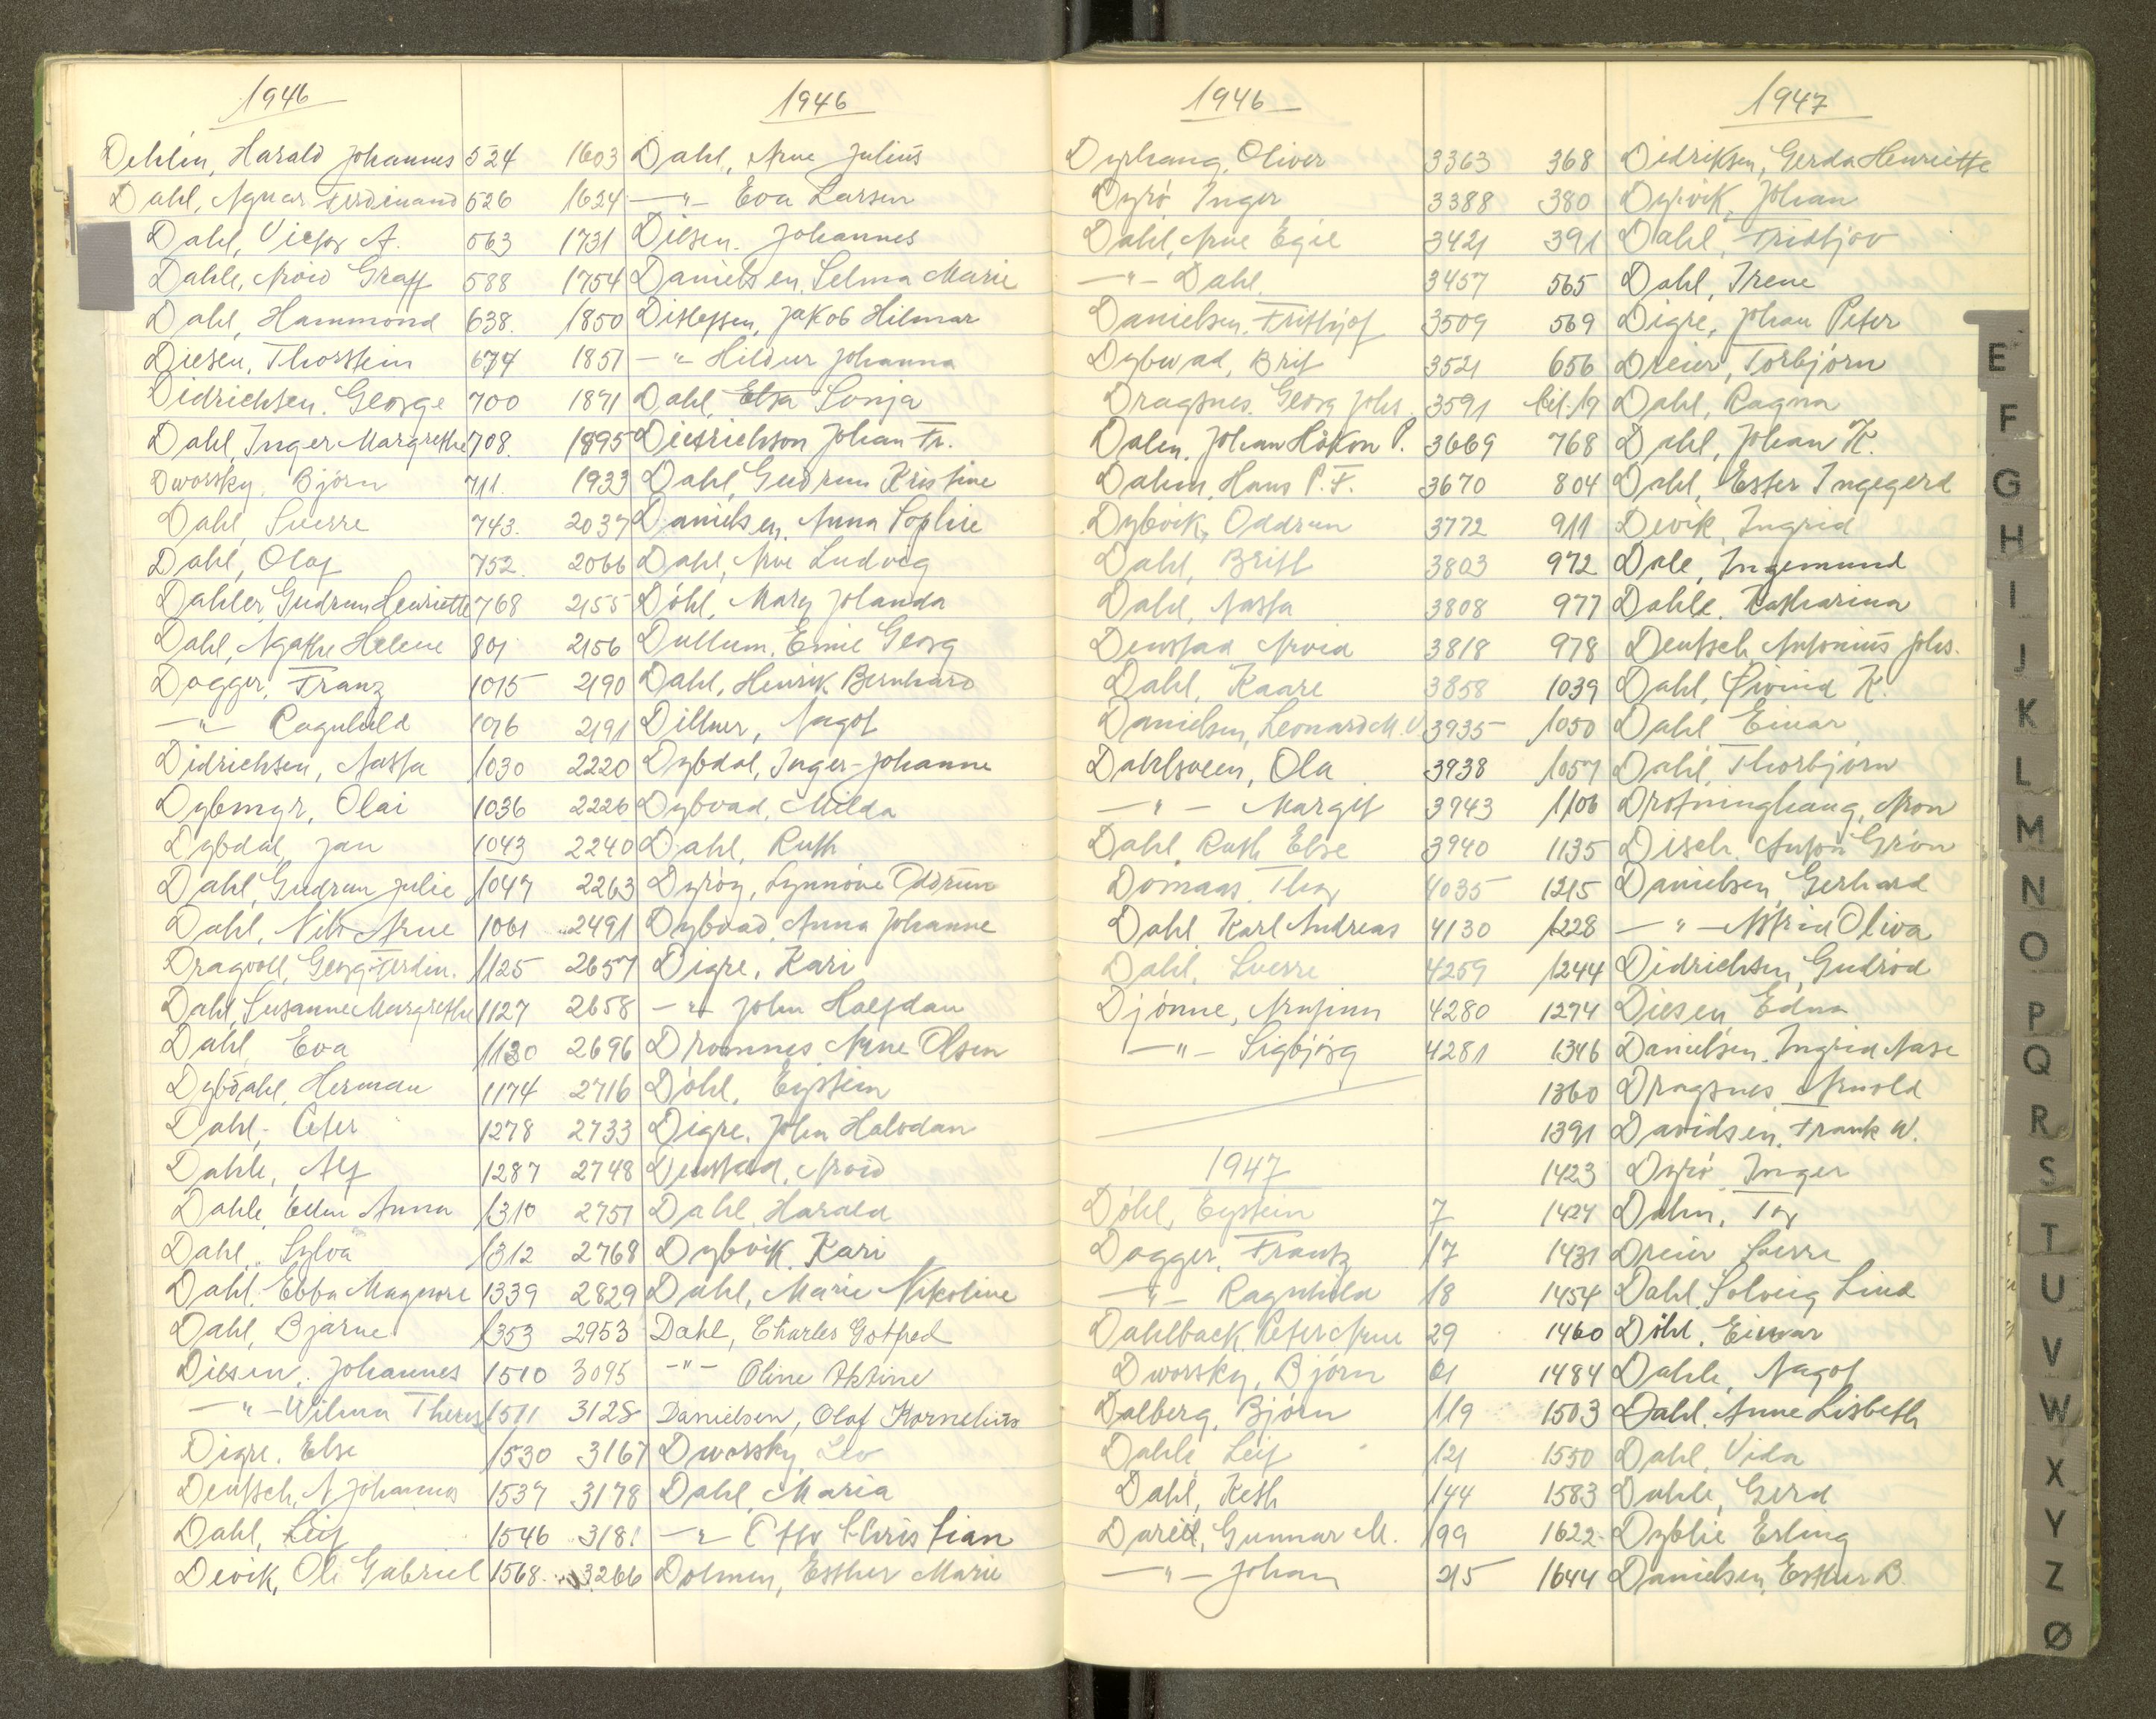 1946
Dehlin, Harald Johannes 524
Dahl, Agnar Ferdinand 526
Dahl, Victor A. 563
Dahle, Arvid Graff 588
Dahl, Hammond 638.
Diesen, Thorstein 674
Didrichsen. George 700
Dahl, Inger Margrethe 708.
Dworsky, Bjørn 711.
Dahl, Sverre 743.
Dahl, Olaf 752.
Dahler, Gudrun Henriette 768
Dahl, Agathe Helene 801
Dogger, Franz 1015
—"— Ragnhild 1016
Didrichsen, Aasta 1030
Dybmyr, Olai 1036
Dybdal, Jan 1043
Dahl, Gudrun Julie 1047
Dahl, Nils Arne 1061
Dragvoll, Georg Ferdin. 1125
Dahl, Susanne Margrethe 1127
Dahl, Eva 1130
Dybdahl, Herman 1174
Dahl, Peter 1278
Dahle, Alf 1287
Dahle, Ellen Anna 1310
Dahl, Sylva 1312
Dahl, Ebba Magnore 1339
Dahl, Bjarne 1353
Diesen, Johannes 1510
—"— Wilma Theres 1511
Digre, Else 1530
Deutsch, A Johannes 1537
Dahl, Leif 1546
Devik, Ole Gabriel 1568
1946
1603 Dahl, Arne Julius
1624 —"— Eva Larsen
1731 Diesen. Johannes
1754 Danielsen, Selma Marie
1850 Ditlefsen, Jakob Hilmar
1851 —"— Hildur Johanna
1891 Dahl, Elsa Sonja
1895 Dietrichson Johan Fr.
1933 Dahl, Gudrun Kristine
2037 Danielsen, Anna Sophie
2066 Dahl, Arve Ludvig
2155 Döhl, Mary Jolanda
2156 Dullum, Emil Georg
2190 Dahl, Henrik Bernhard
2191 Dillner, Aagot
2220 Dybdal, Inger-Johanne
2226 Dybvad, Milda
2240 Dahl, Ruth
2263 Dyrøy, Synnöve Oddrun
2491 Dybvad, Anna Johanne
2657 Digre, Kari
2658 —"— John Halfdan
2696 Dromnes Arne Olsen
2716 Döhl, Eystein
2733 Digre, John Halvdan
2748 Denstad, Arvid
2751 Dahl, Harald
2768 Dybvik, Kari
2829 Dahl, Marie Nikoline
2953 Dahl, Charles Gotfred
3095 —"— Oline Aktine
3128 Danielsen, Olaf Kornelius
3167 Dworsky, Leo
3178 Dahl, Maria
3181 —"— Otto Christian
3266 Dolmen, Esther Marie
1946
Dyrhaug, Oliver 3363
Dyrö Inger 3388
Dahl, Arne Egil 3421
—"— Dahl. 3457
Danielsen, Fritjof 3509
Dybwad, Brit 3521
Dragsnes, Georg Johs. 3591
Dalen, Johan Håkon P. 3669
Dahm, Hans P.F. 3670
Dybvik, Oddrun 3772
Dahl, Britt 3803
Dahl, Aasta 3808
Denstad Arvid 3818
Dahl, Kaare 3858
Danielsen, Leonard M. V 3935
Dahlsveen, Ola 3938
—"— Margit 3943
Dahl, Ruth Else 3940
Domaas, Thor 4035
Dahl Karl Andreas 4130
Dahl, Sverre 4259
Djönne, Arnfinn 4280
—"— Sigbjörg 4281
1947
Döhl, Eystein 7
Dogger, Frantz 17
—"— Ragnhild 18
Dahlback, Peter Arne 29
Dworsky, Björn 61
Dalberg, Björn 119
Dahle, Leif 121
Dahl, Keth 144
Darell, Gunnar M. 199
—"— Johan 215
1947
368 Didriksen, Gerda Henriette
380 Dyrvik, Johan
391 Dahl, Fridtjov
565 Dahl, Irene
569 Digre, Johan Peter
656 Dreier, Torbjørn
bil. 19 Dahl, Ragna
768 Dahl, Johan K.
804 Dahl, Ester Ingegerd
911 Devik, Ingrid
972 Dale, Ingemund
977 Dahle, Katharina
978 Deutsch Antonius Johs.
1039 Dahl, Øivind K.
1050 Dahl Einar
1057 Dahl, Thorbjørn
1106 Drotninghaug, Aron
1135 Disch, Anton Grön
1215 Danielsen, Gerhard
1228 —"— Astrid Oliva
1244 Didrichsen, Gudröd
1274 Diesen, Edna
1346 Danielsen, Ingrid Aase
1360 Dragsnes, Arnold
1391 Davidsen, Frank W.
1423 Dyrö, Inger
1424 Dahm, Tor
1431 Dreier Sverre
1454 Dahl, Solveig Lind
1460 Döhl, Einar
1484 Dahle, Aagot
1503 Dahl, Anne Lisbeth
1550 Dahl, Vida
1583 Dahle, Gerd
1622 Dyblie Erling
1644 Danielsen, Esther B.
E
F
G
H
I
J
K
L
M
N
O
P
Q
R
S
T
U
V
W
X
Y
Z
Ø